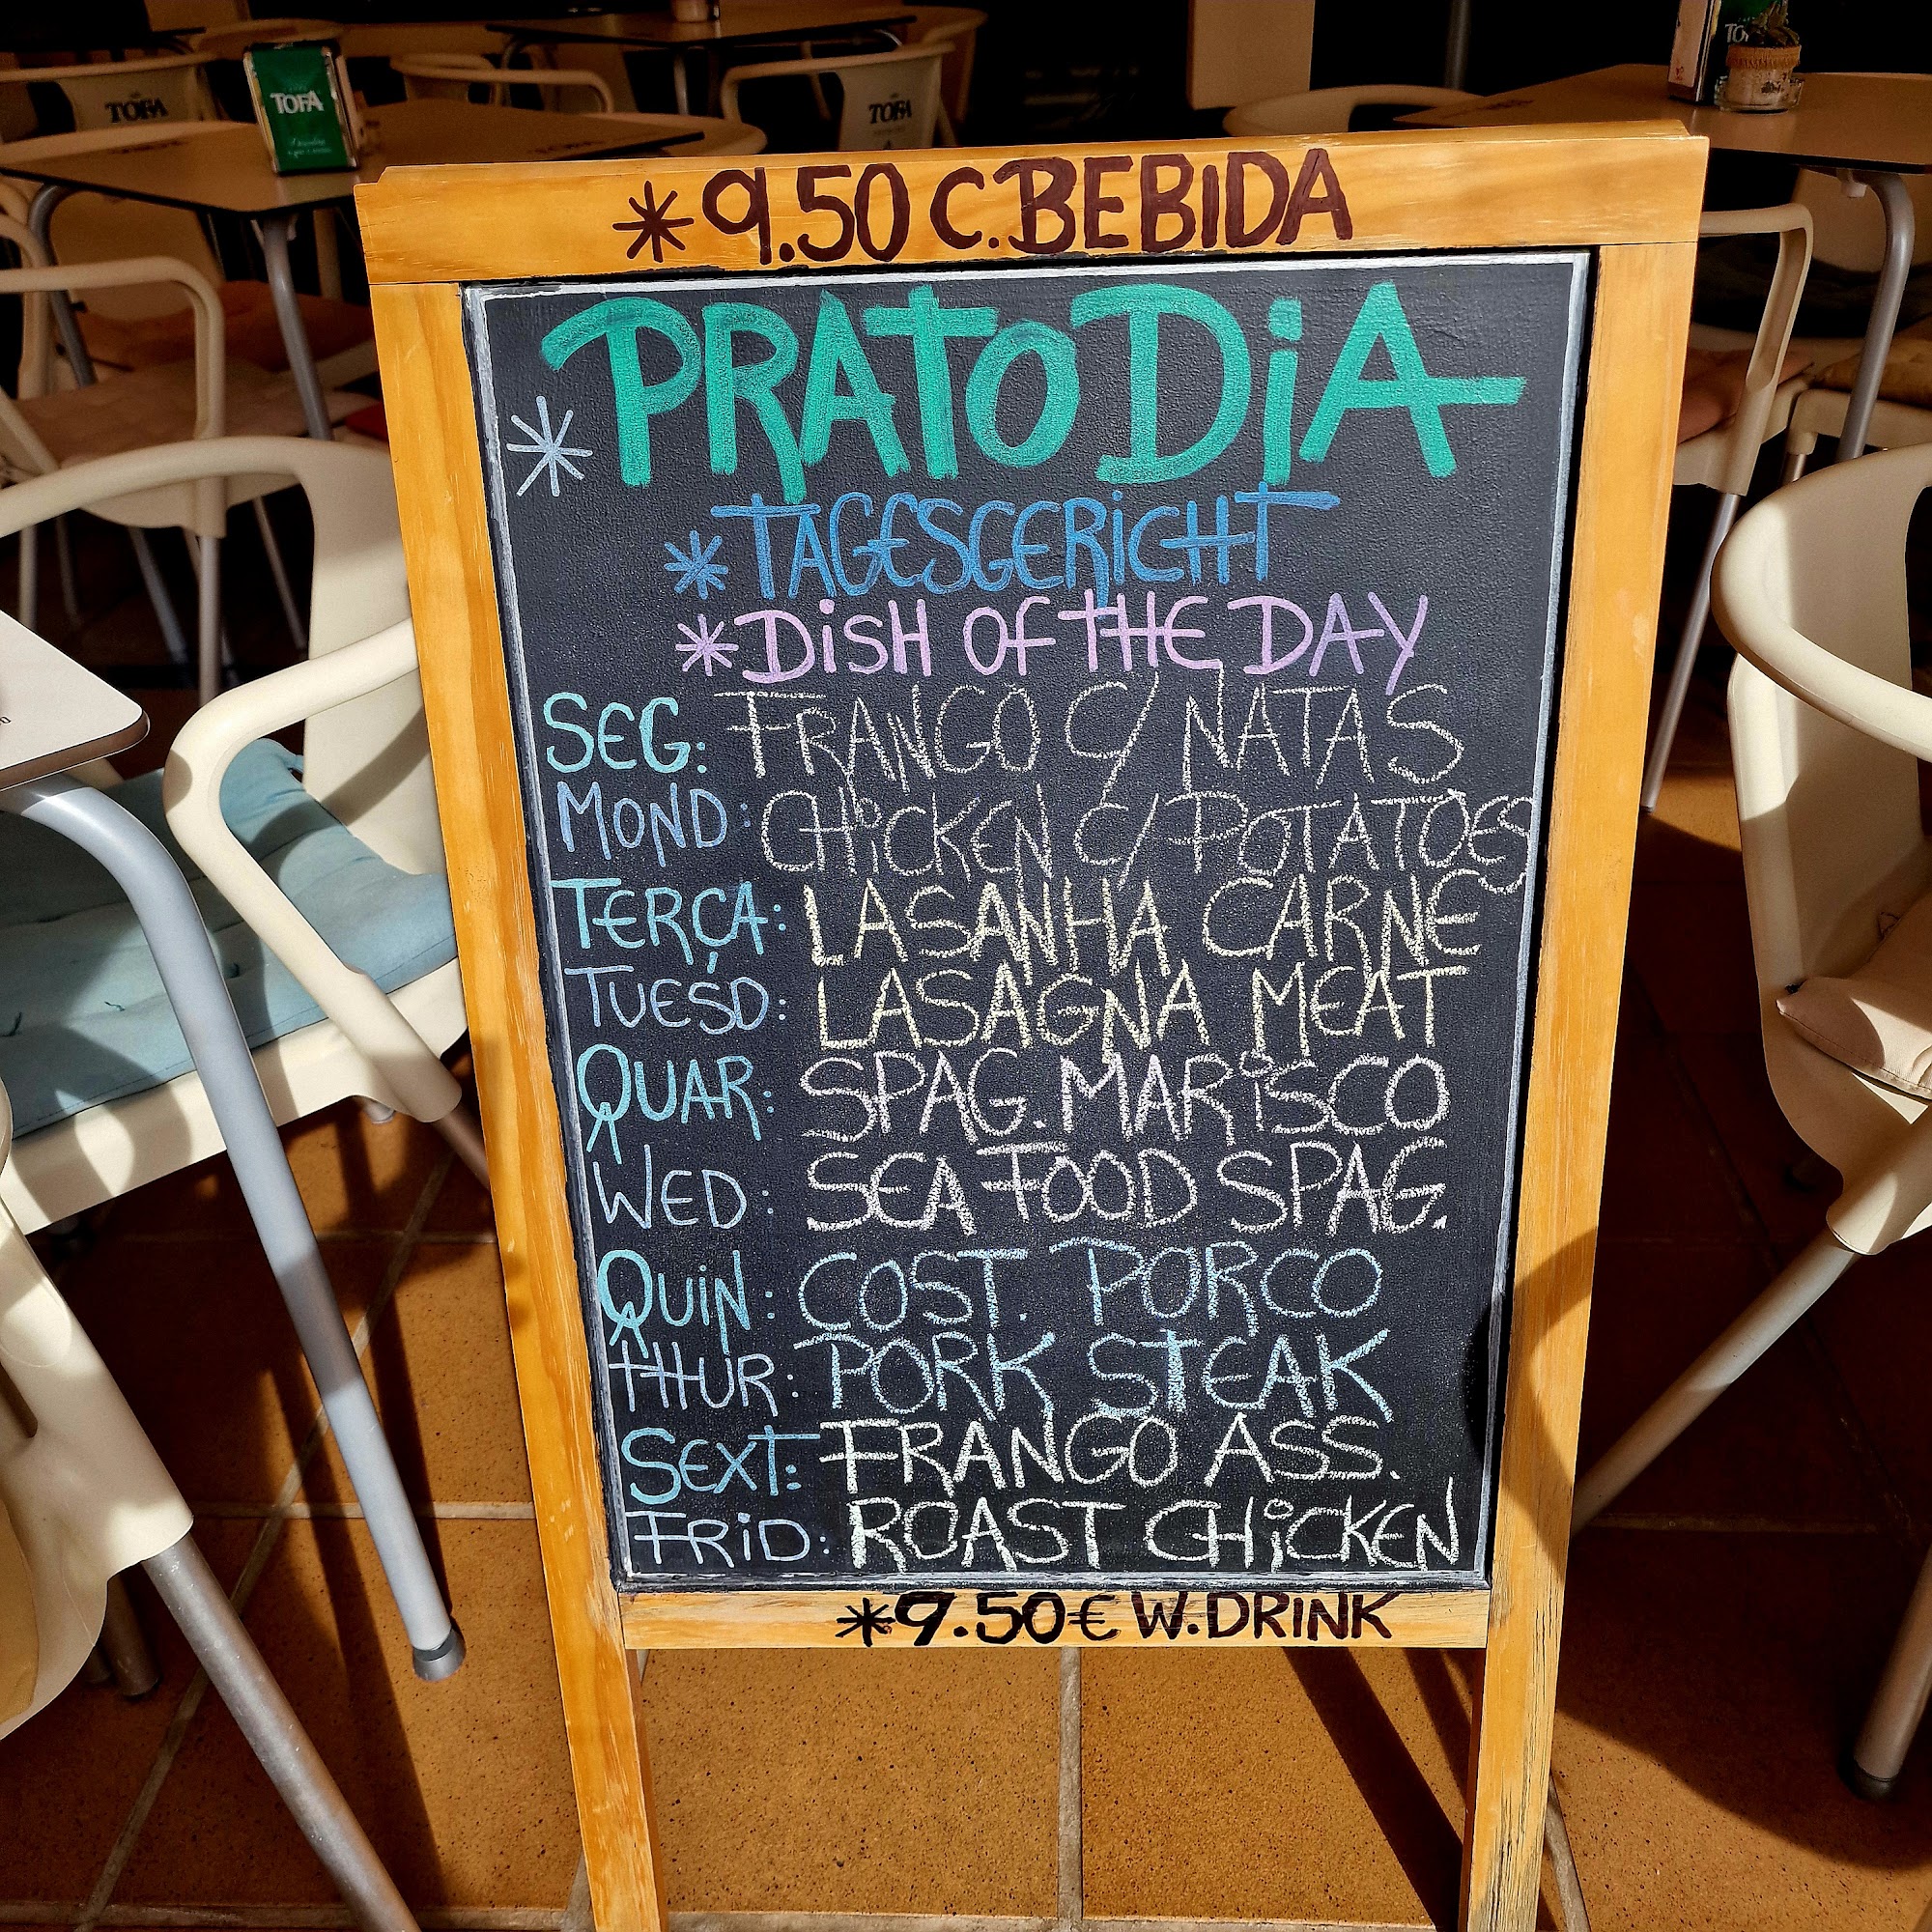 TOFA
TOFA
TOFA
*9.50 C.BEBIDA
*PRATO DiA
*TAGESGERiCHT
*DiSH OF THE DAY
SEG: FRANGO C/ NATAS
MOND: CHiCKEN C/ POTATOES
TERÇA: LASANHA CARNE
TUESD: LASAGNA MEAT
QUAR: SPAG. MARiSCO
WED: SEA FOOD SPAG.
QUiN: COST. PORCO
THUR: PORK STEAK
SEXT: FRANGO ASS.
FRiD: ROAST CHiCKEN
*9.50€ W.DRINK